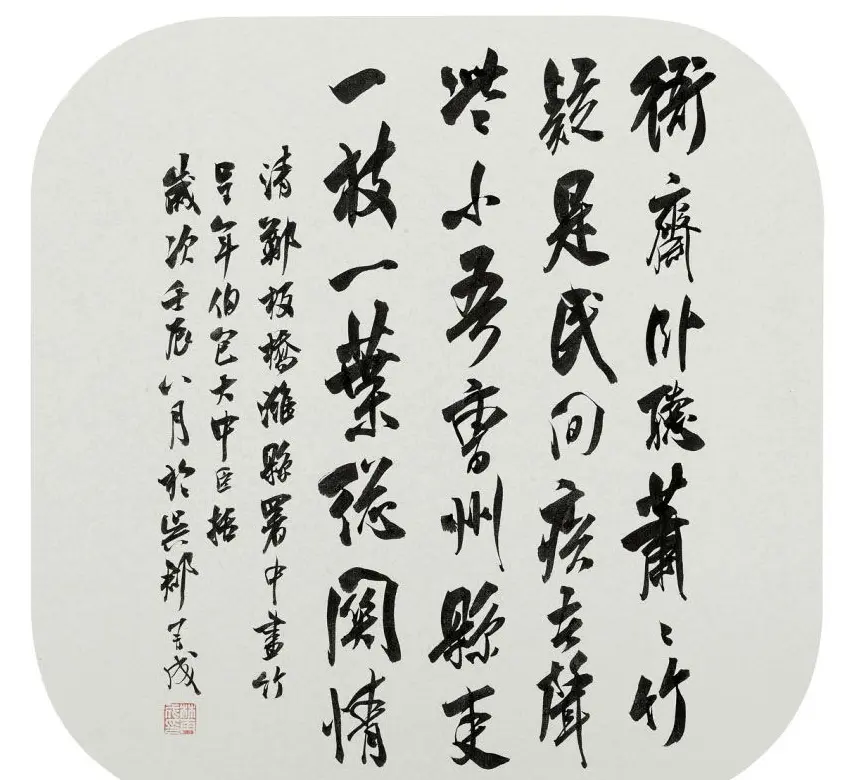 衙齋卧聽蕭〻竹
疑是民间疾苦聲
些小吾曹州縣吏
一枝一葉總關情
清鄭板橋濰縣署中畫竹
呈年伯包大中丞括
歲次壬辰八月於吳郡